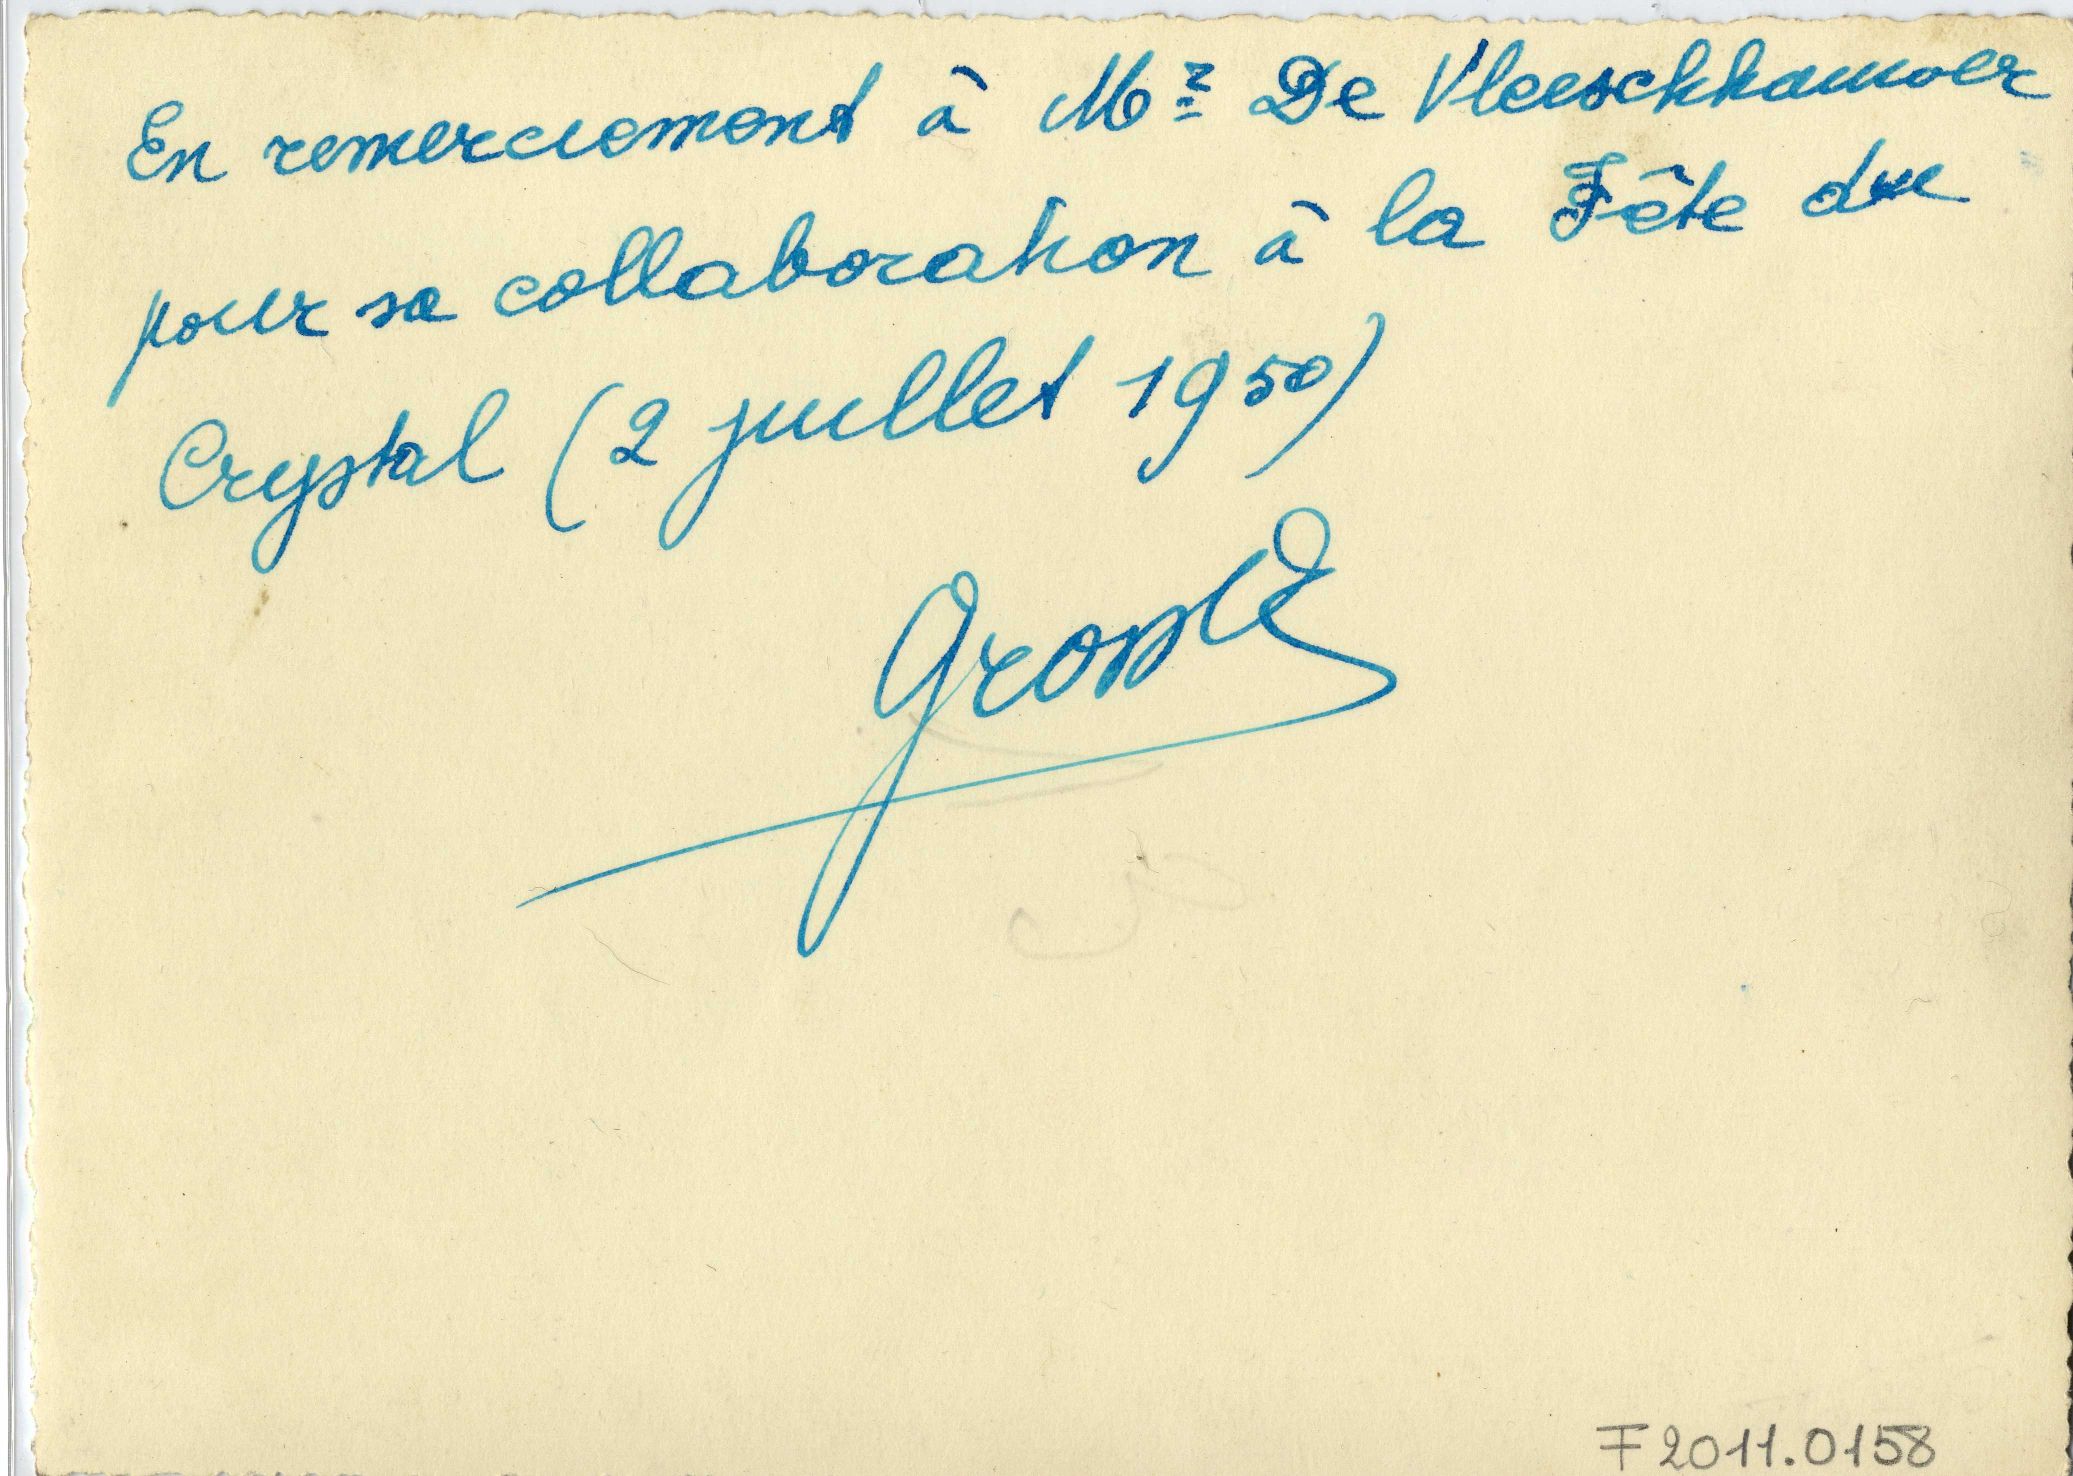 En remerciement à Mr De Vleeschhauwer
pour sa collaboration à la Fête du
Crystal (2 juillet 1950)
F2011.0158